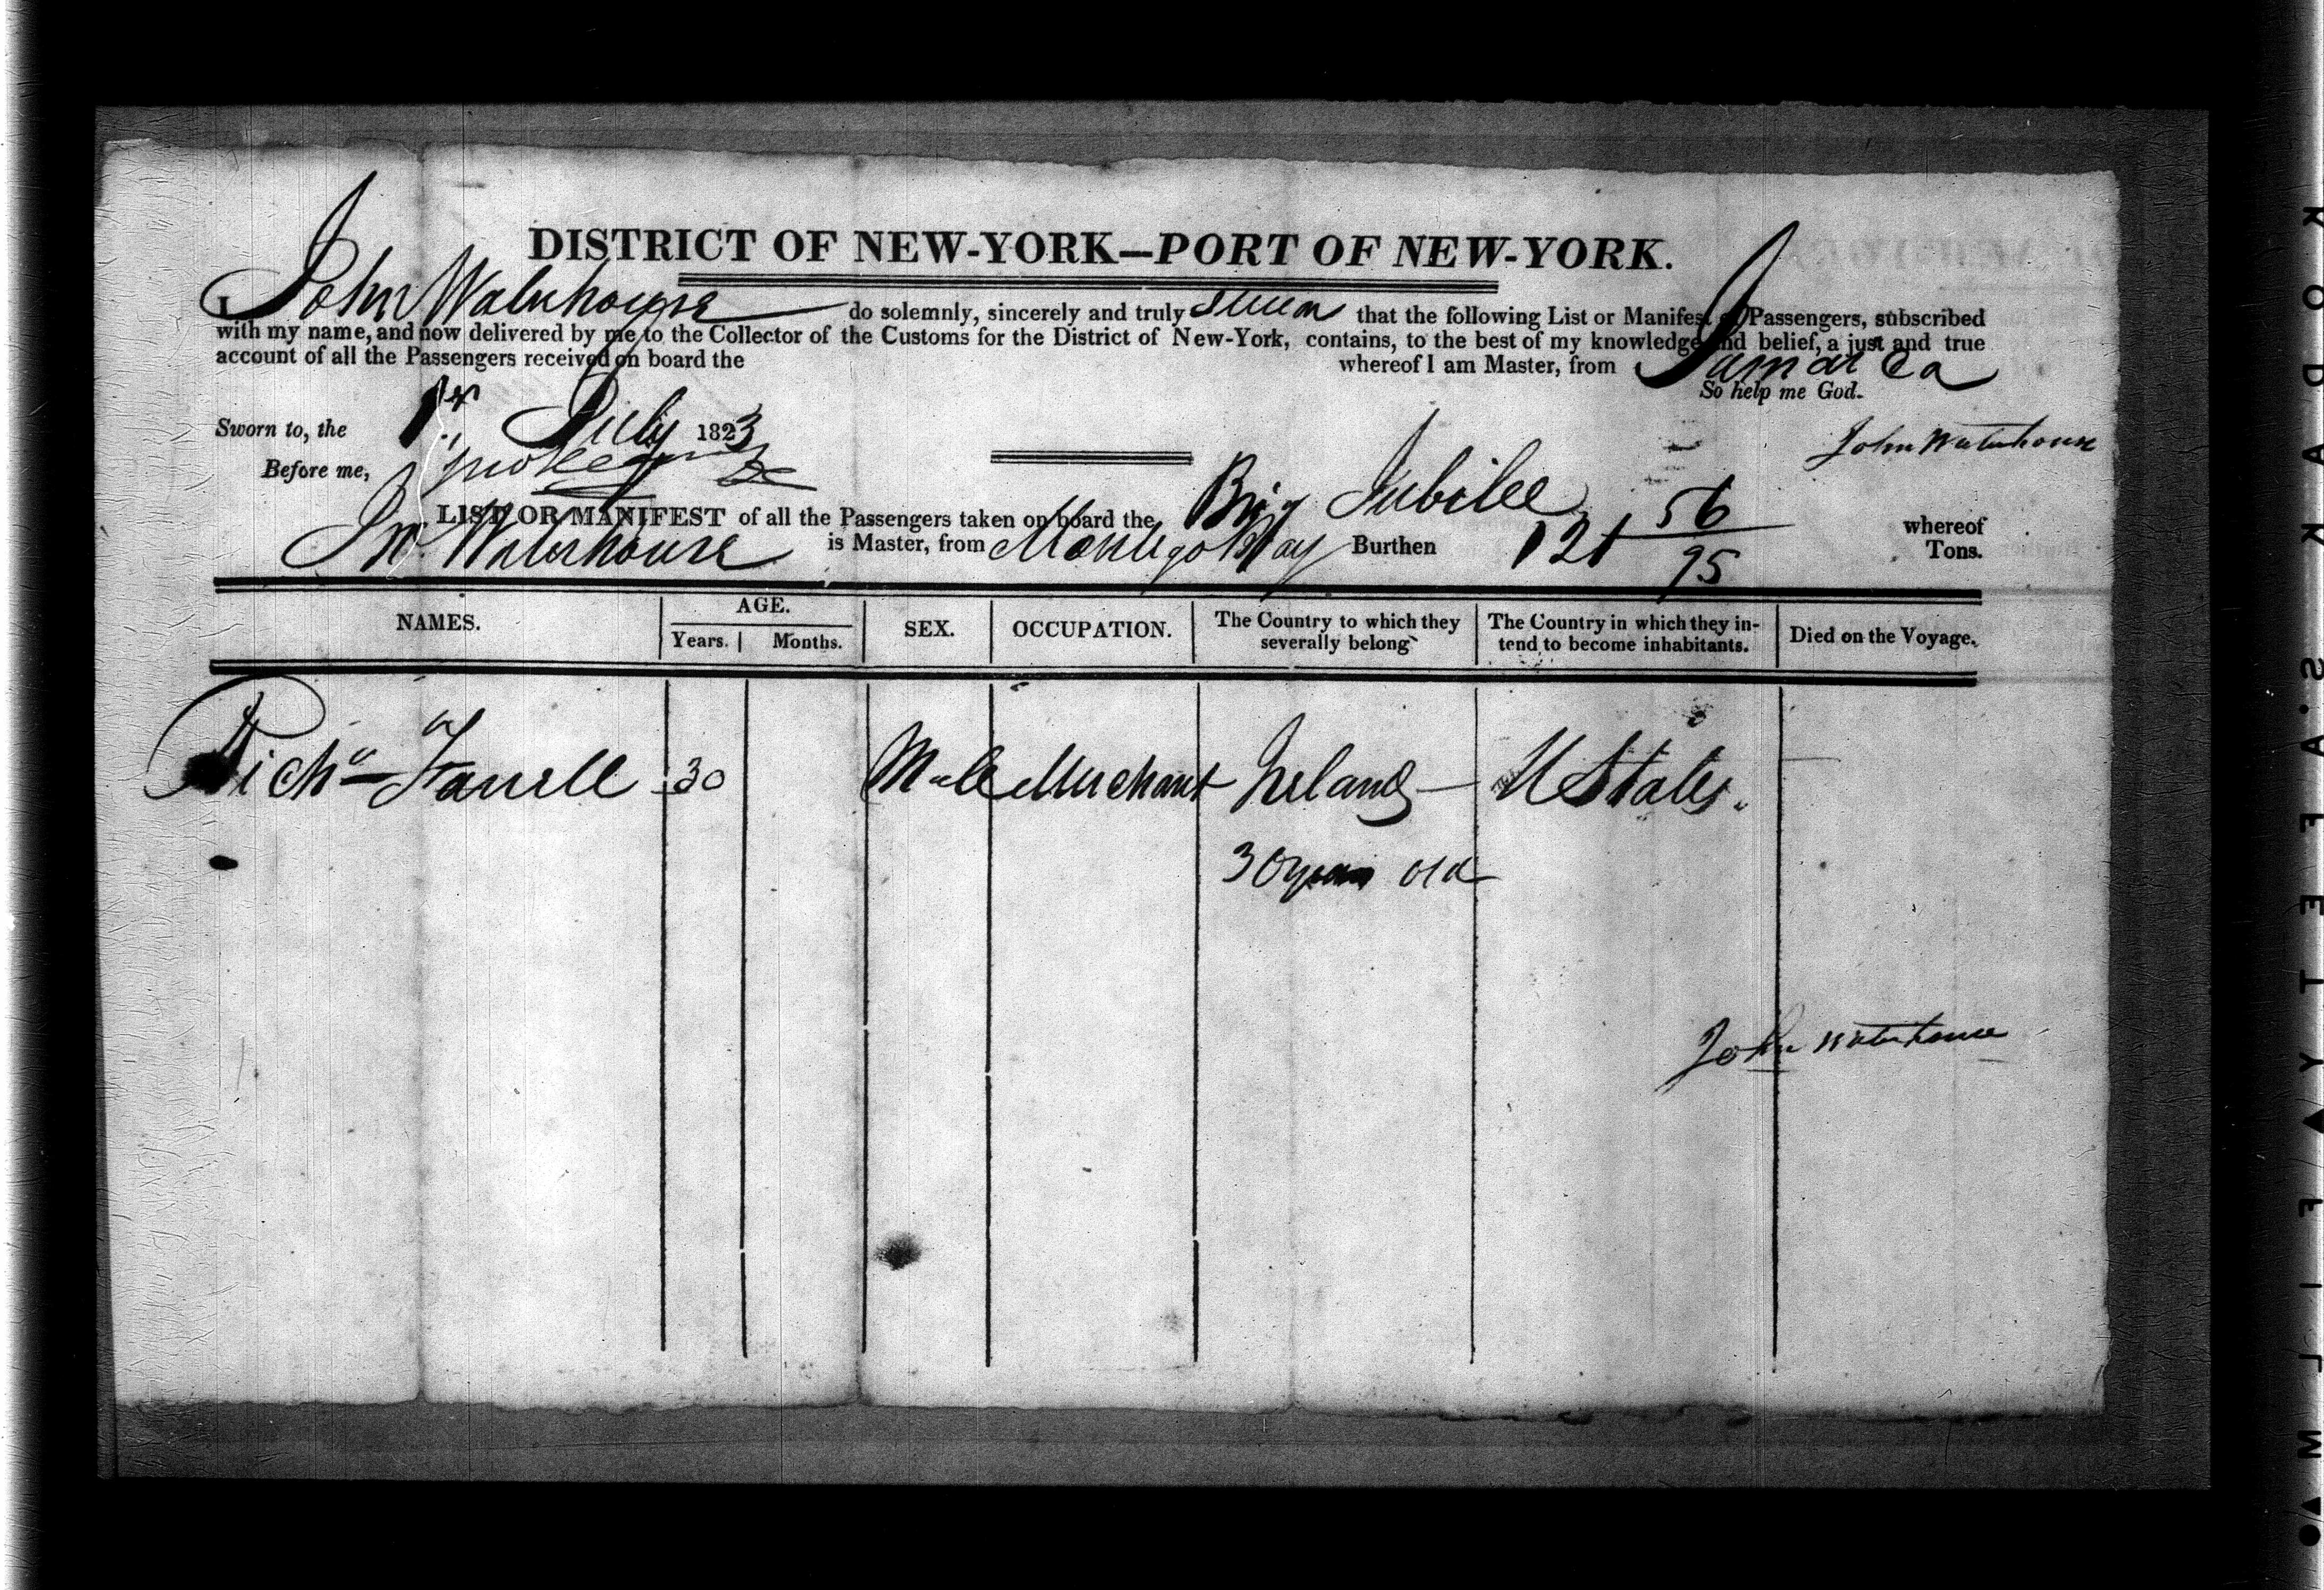 DISTRICT OF NEW-YORK—PORT OF NEW-YORK.
I John Waterhouse do solemnly, sincerely and truly swear that the following List or Manifest of Passengers, subscribed
with my name, and now delivered by me to the Collector of the Customs for the District of New-York, contains, to the best of my knowledge and belief, a just and true
account of all the Passengers received on board the whereof I am Master, from Jamaica
So help me God.
Sworn to, the 1st July 1823
John Waterhouse
Before me,
LIST OR MANIFEST of all the Passengers taken on board the Brig Jubilee whereof
Jno Waterhouse is Master, from Montego Bay Burthen 121 56/95 Tons.
NAMES. AGE. Years. Months. SEX. OCCUPATION. The Country to which they severally belong The Country in which they intend to become inhabitants. Died on the Voyage.
Richd Farrell 30 Male Merchant Ireland — U States.
30 years old
John Waterhouse
KODAK S.AFETY FILM